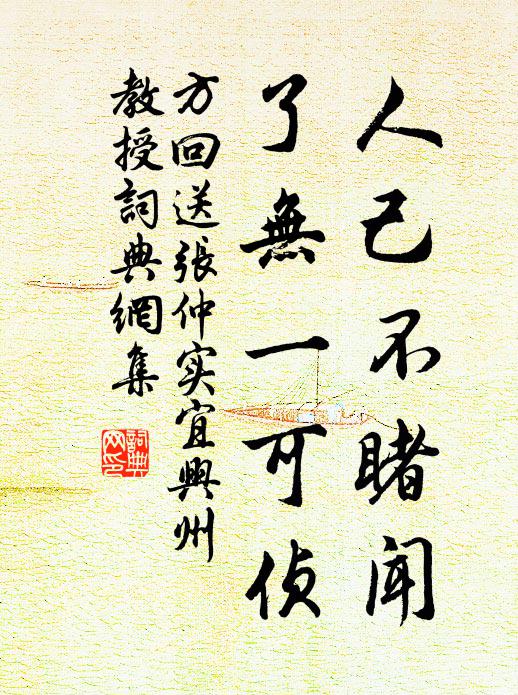 人己不睹闻
了無一可侦
方回送張仲实宜興州
教授詞典網集
詞典网印